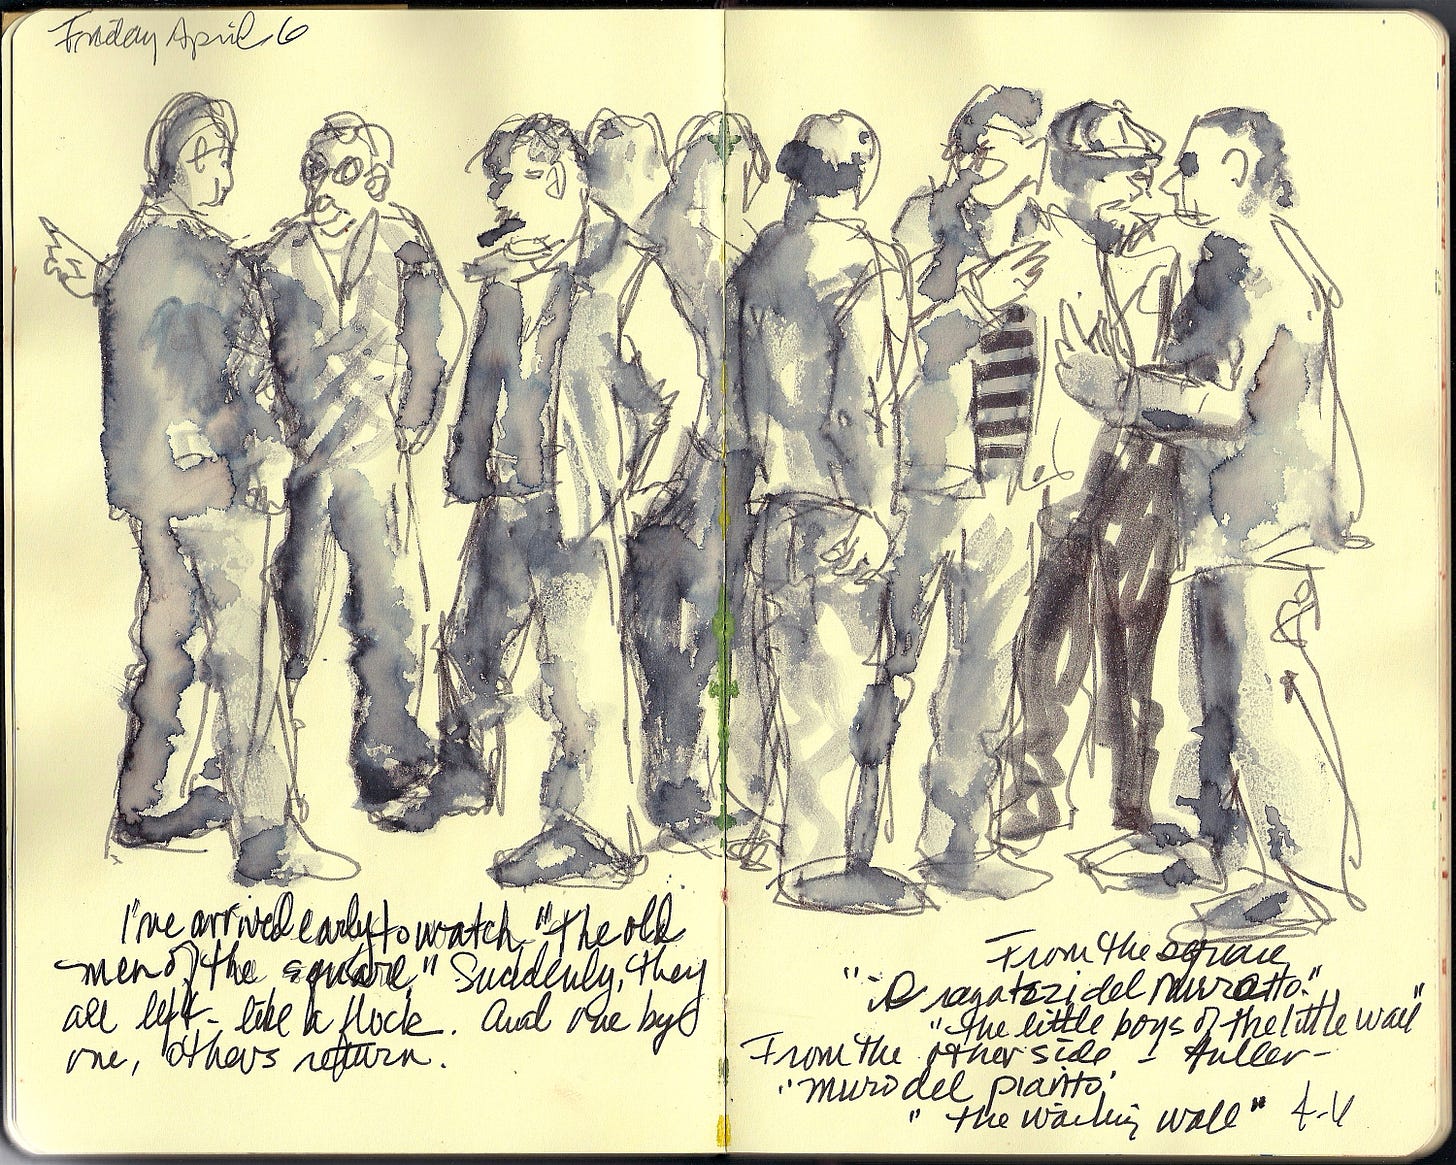 Friday April 6
I've arrived early to watch "the old
men of the square" Suddenly, they
all left - like a flock. And one by
one, others return.
From the square
"i ragatzzi del muretto."
"the little boys of the little wall"
From the other side -
"muro del pianto,"
"the wailing wall" 4-6